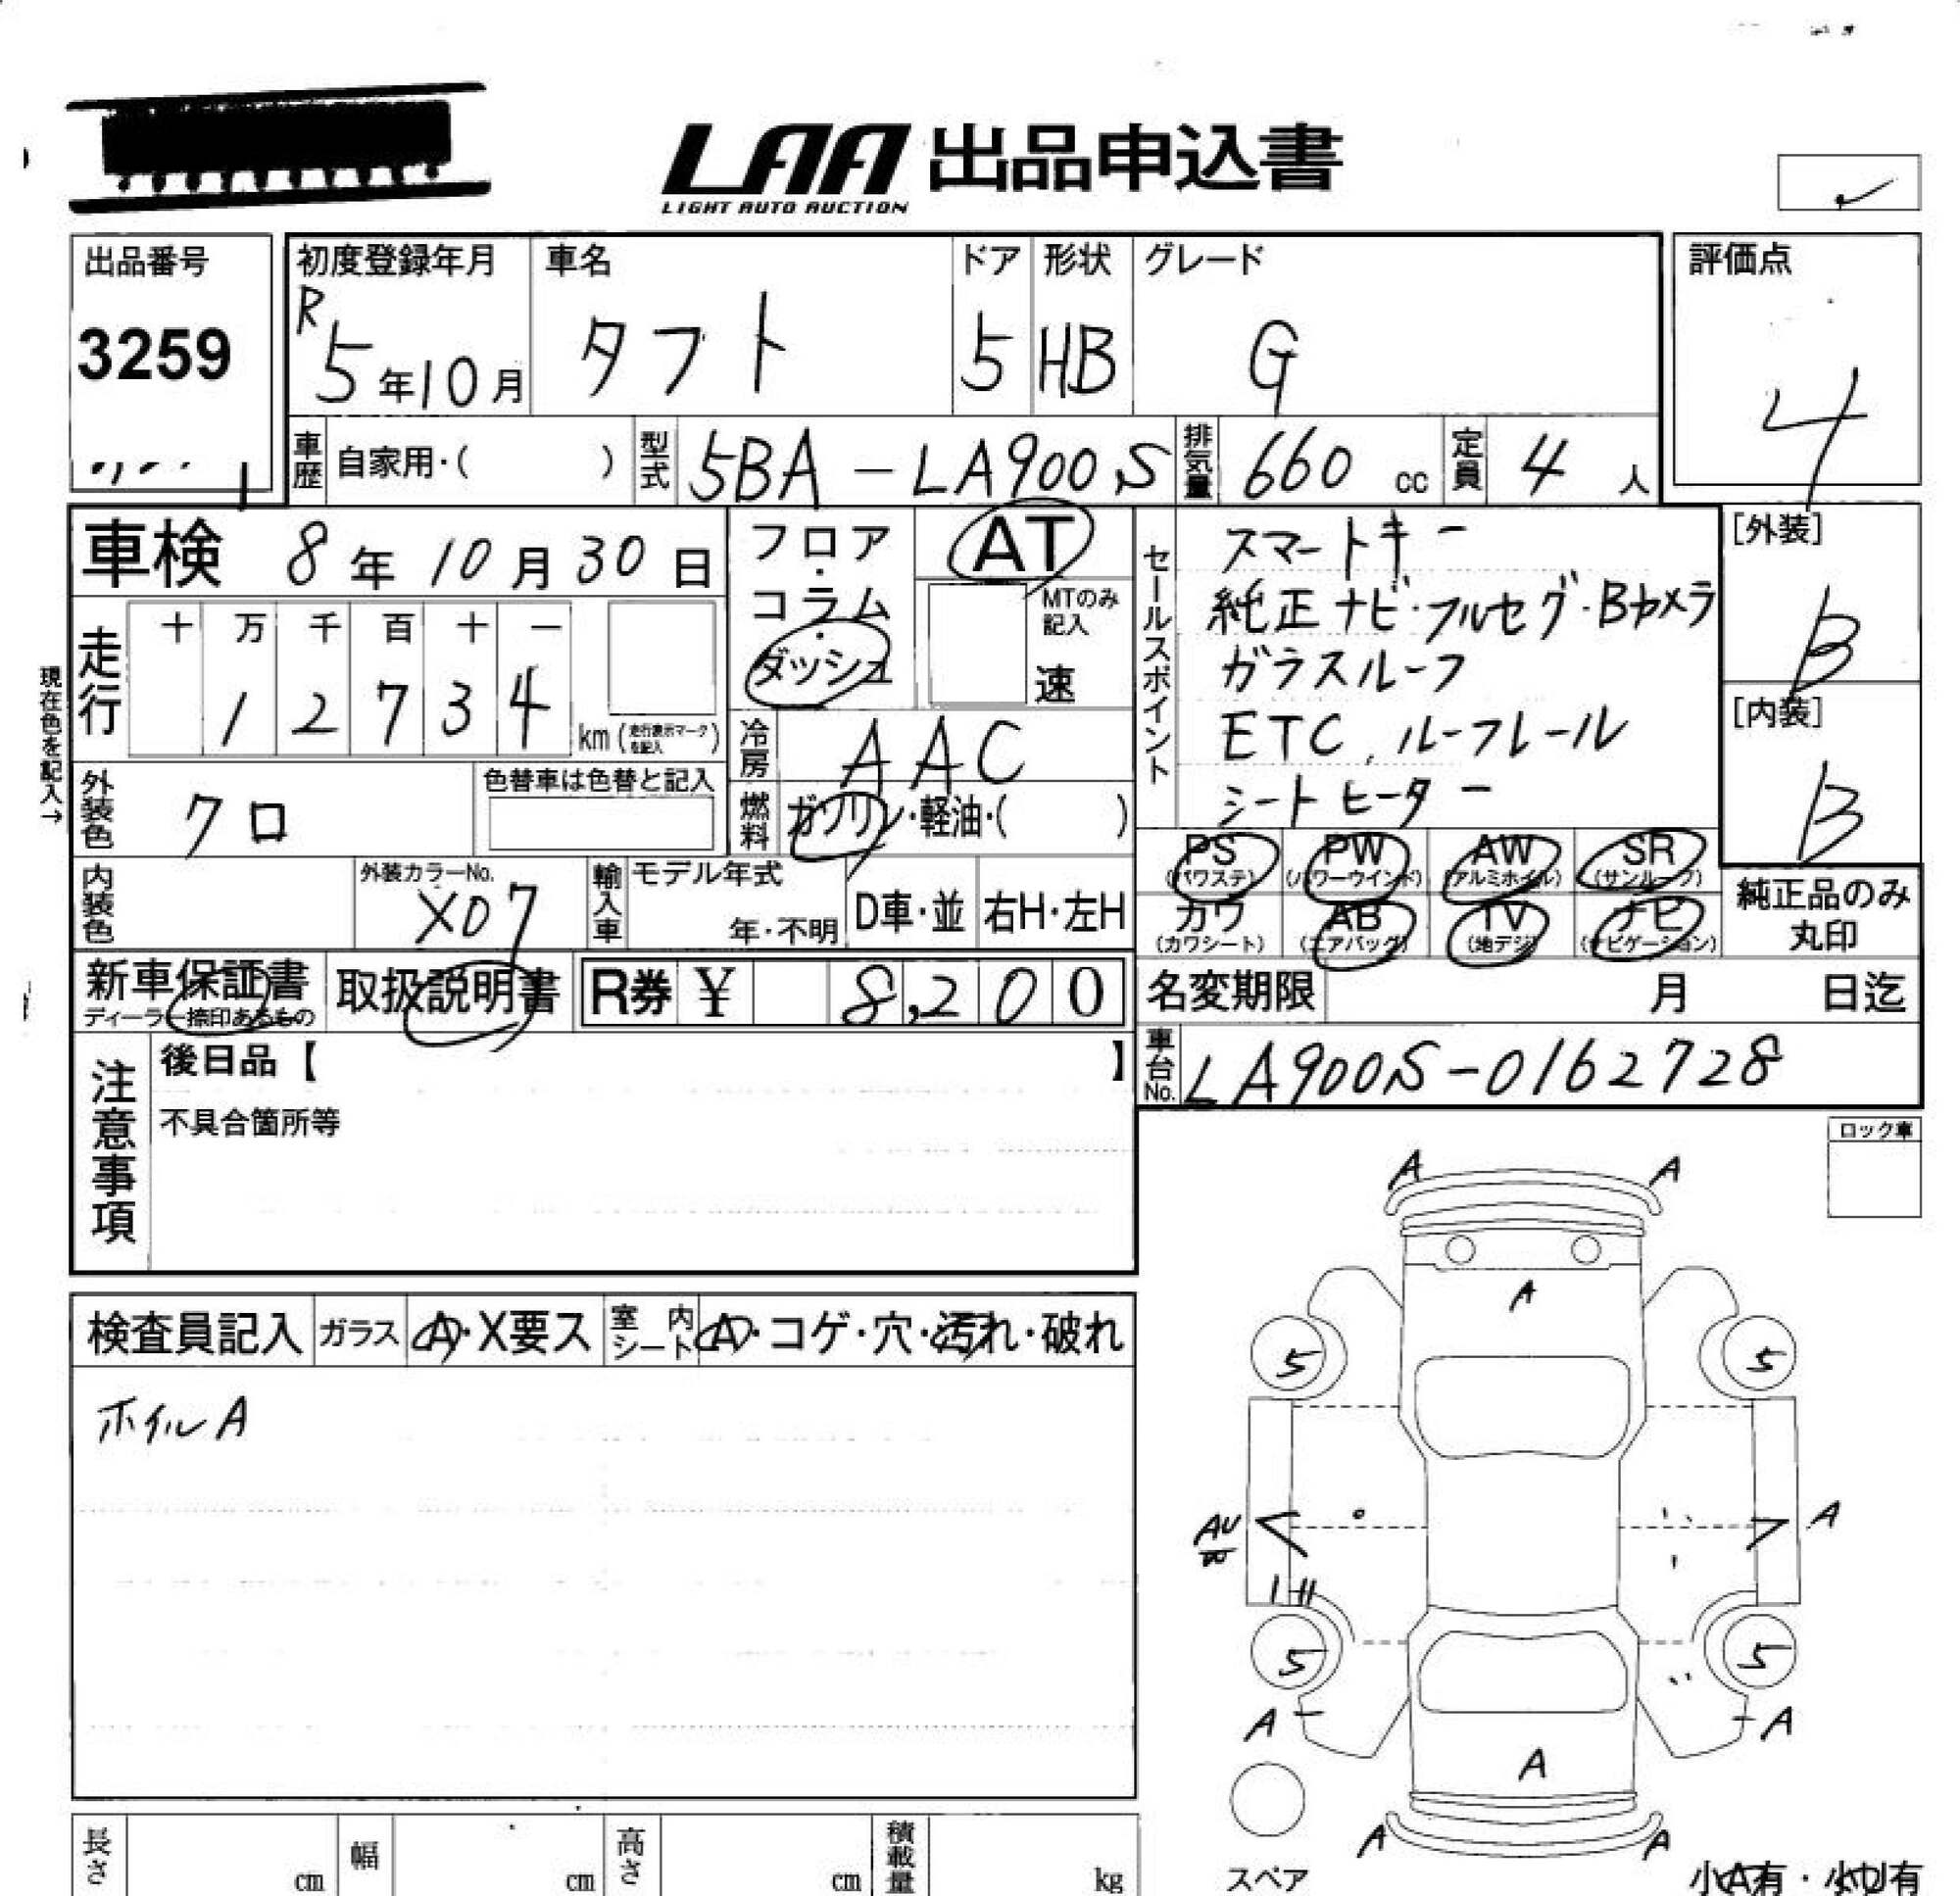 LAA 出品申込書
LIGHT AUTO AUCTION
出品番号
3259
初度登録年月
R
5年10月
車名
タフト
ドア
5
形状
HB
グレード
G
評価点
4
車歴
自家用・( )
型式
5BA-LA900S
排気量
660 cc
定員
4 人
車検 8年10月30日
フロア・コラム・ダッシュ
AT
MTのみ記入
速
セールスポイント
スマートキー
純正ナビ・フルセグ・Bカメラ
ガラスルーフ
ETC、ルーフレール
シートヒーター
[外装]
B
[内装]
B
現在色を記入→
走行
十 万 千 百 十 一
1 2 7 3 4 km (走行表示マークを記入)
冷房
AAC
外装色
クロ
色替車は色替と記入
燃料
ガソリン・軽油・( )
PS (パワステ)
PW (パワーウインド)
AW (アルミホイル)
SR (サンルーフ)
カワ (カワシート)
AB (エアバッグ)
TV (地デジ)
ナビ (ナビゲーション)
純正品のみ
丸印
内装色
外装カラーNo.
X07
輸入車
モデル年式
年・不明
D車・並
右H・左H
新車保証書
ディーラー捺印あるもの
取扱説明書
R券 ¥ 8,200
名変期限 月 日迄
車台No.
LA900S-0162728
注意事項
後日品【 】
不具合箇所等
ロック車
検査員記入
ガラス
A・X要ス
室内シート
A・コゲ・穴・汚れ・破れ
ホイルA
A A
A
5 5
AU
W
A
5 5
A A
A
A A
スペア
小A有・小U有
長さ cm
幅 cm
高さ cm
積載量 kg